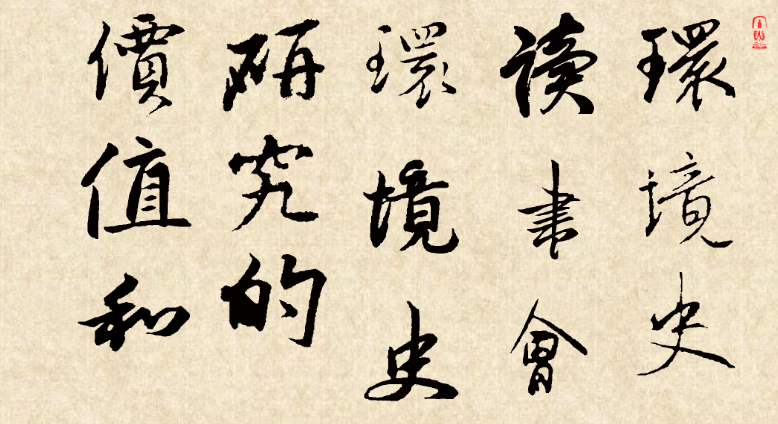 環境史
读書會
環境史
研究的
價值和